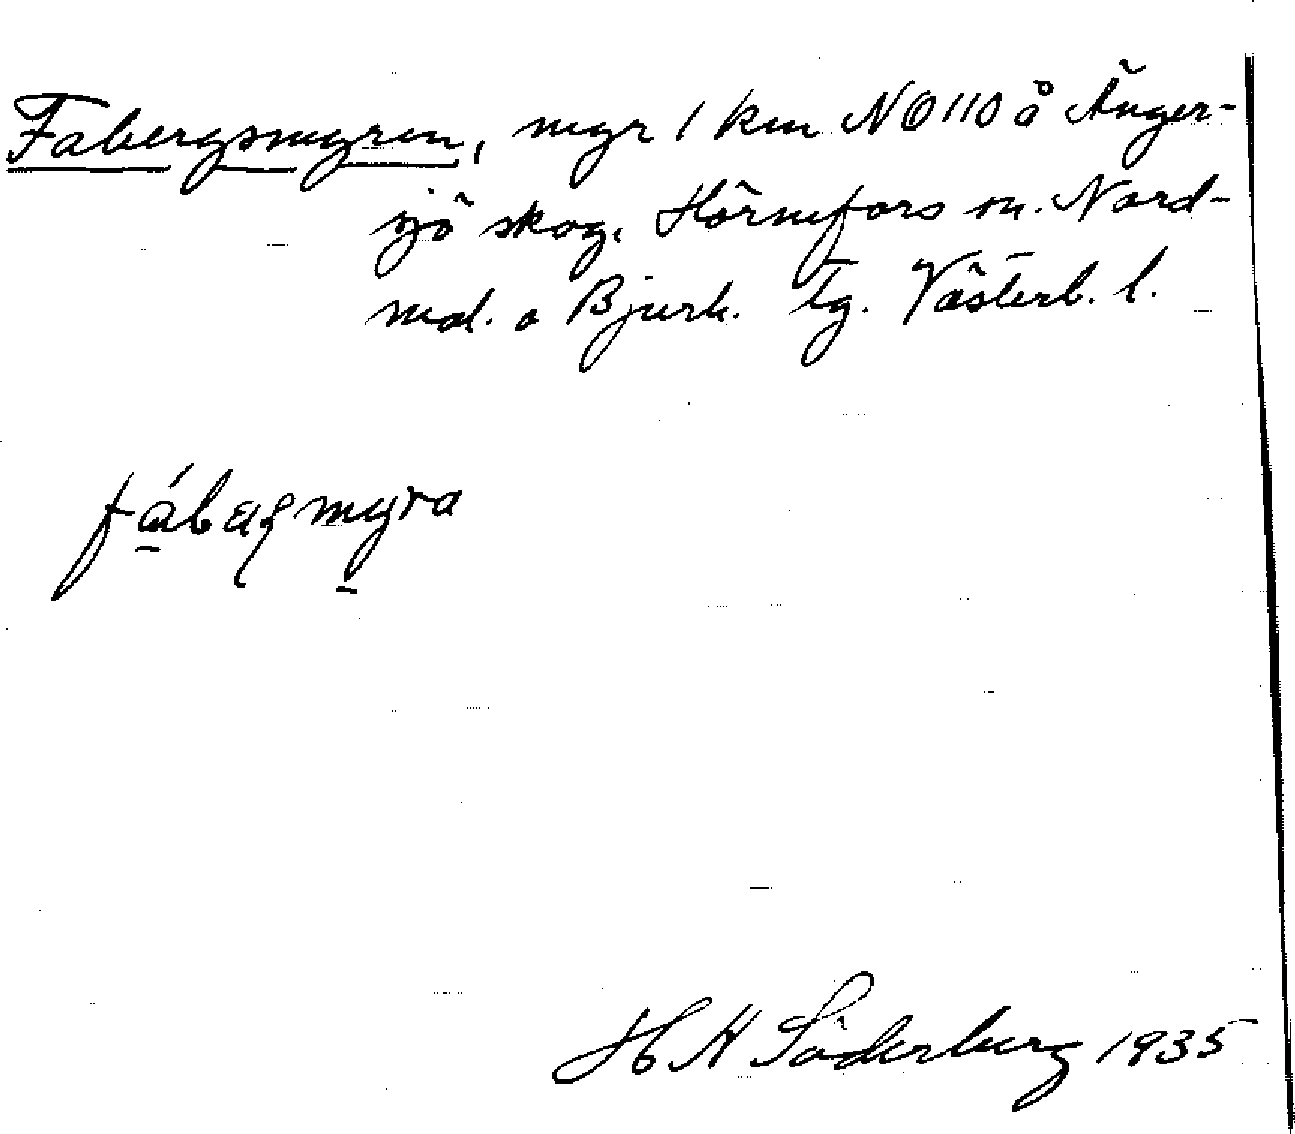 Fabergsmyren, myr 1 km NO 110 å Ånger-
sjö skog. Hörnefors sn. Nord-
mal. o Bjurh. tg. Västerb. l.
H H Söderberg 1935